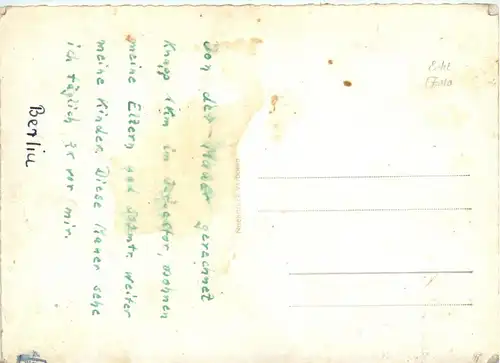 Von der Mauer gerechnet
Knapp 1Km im wohnen
meine Eltern und weiter
meine Kinder. Diese Mauer sehe
ich täglich vor mir.
Berlin
Echt
Foto